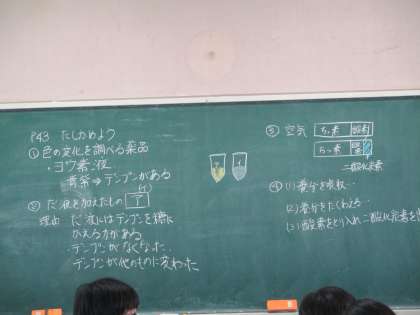 P43 たしかめよう
①色の変化を調べる薬品
・ヨウ素液
青紫⇒デンプンがある
②だ液を加えたもの ア
理由 だ液にはデンプンを糖に
かえる力がある
・デンプンがなくなった
デンプンが他のものに変わった
ア イ
③空気 ちっ素 酸素
ちっ素 酸素
二酸化炭素
④(1)養分を吸収…
(2)養分をたくわえる…
(3)酸素をとり入れ二酸化炭素を